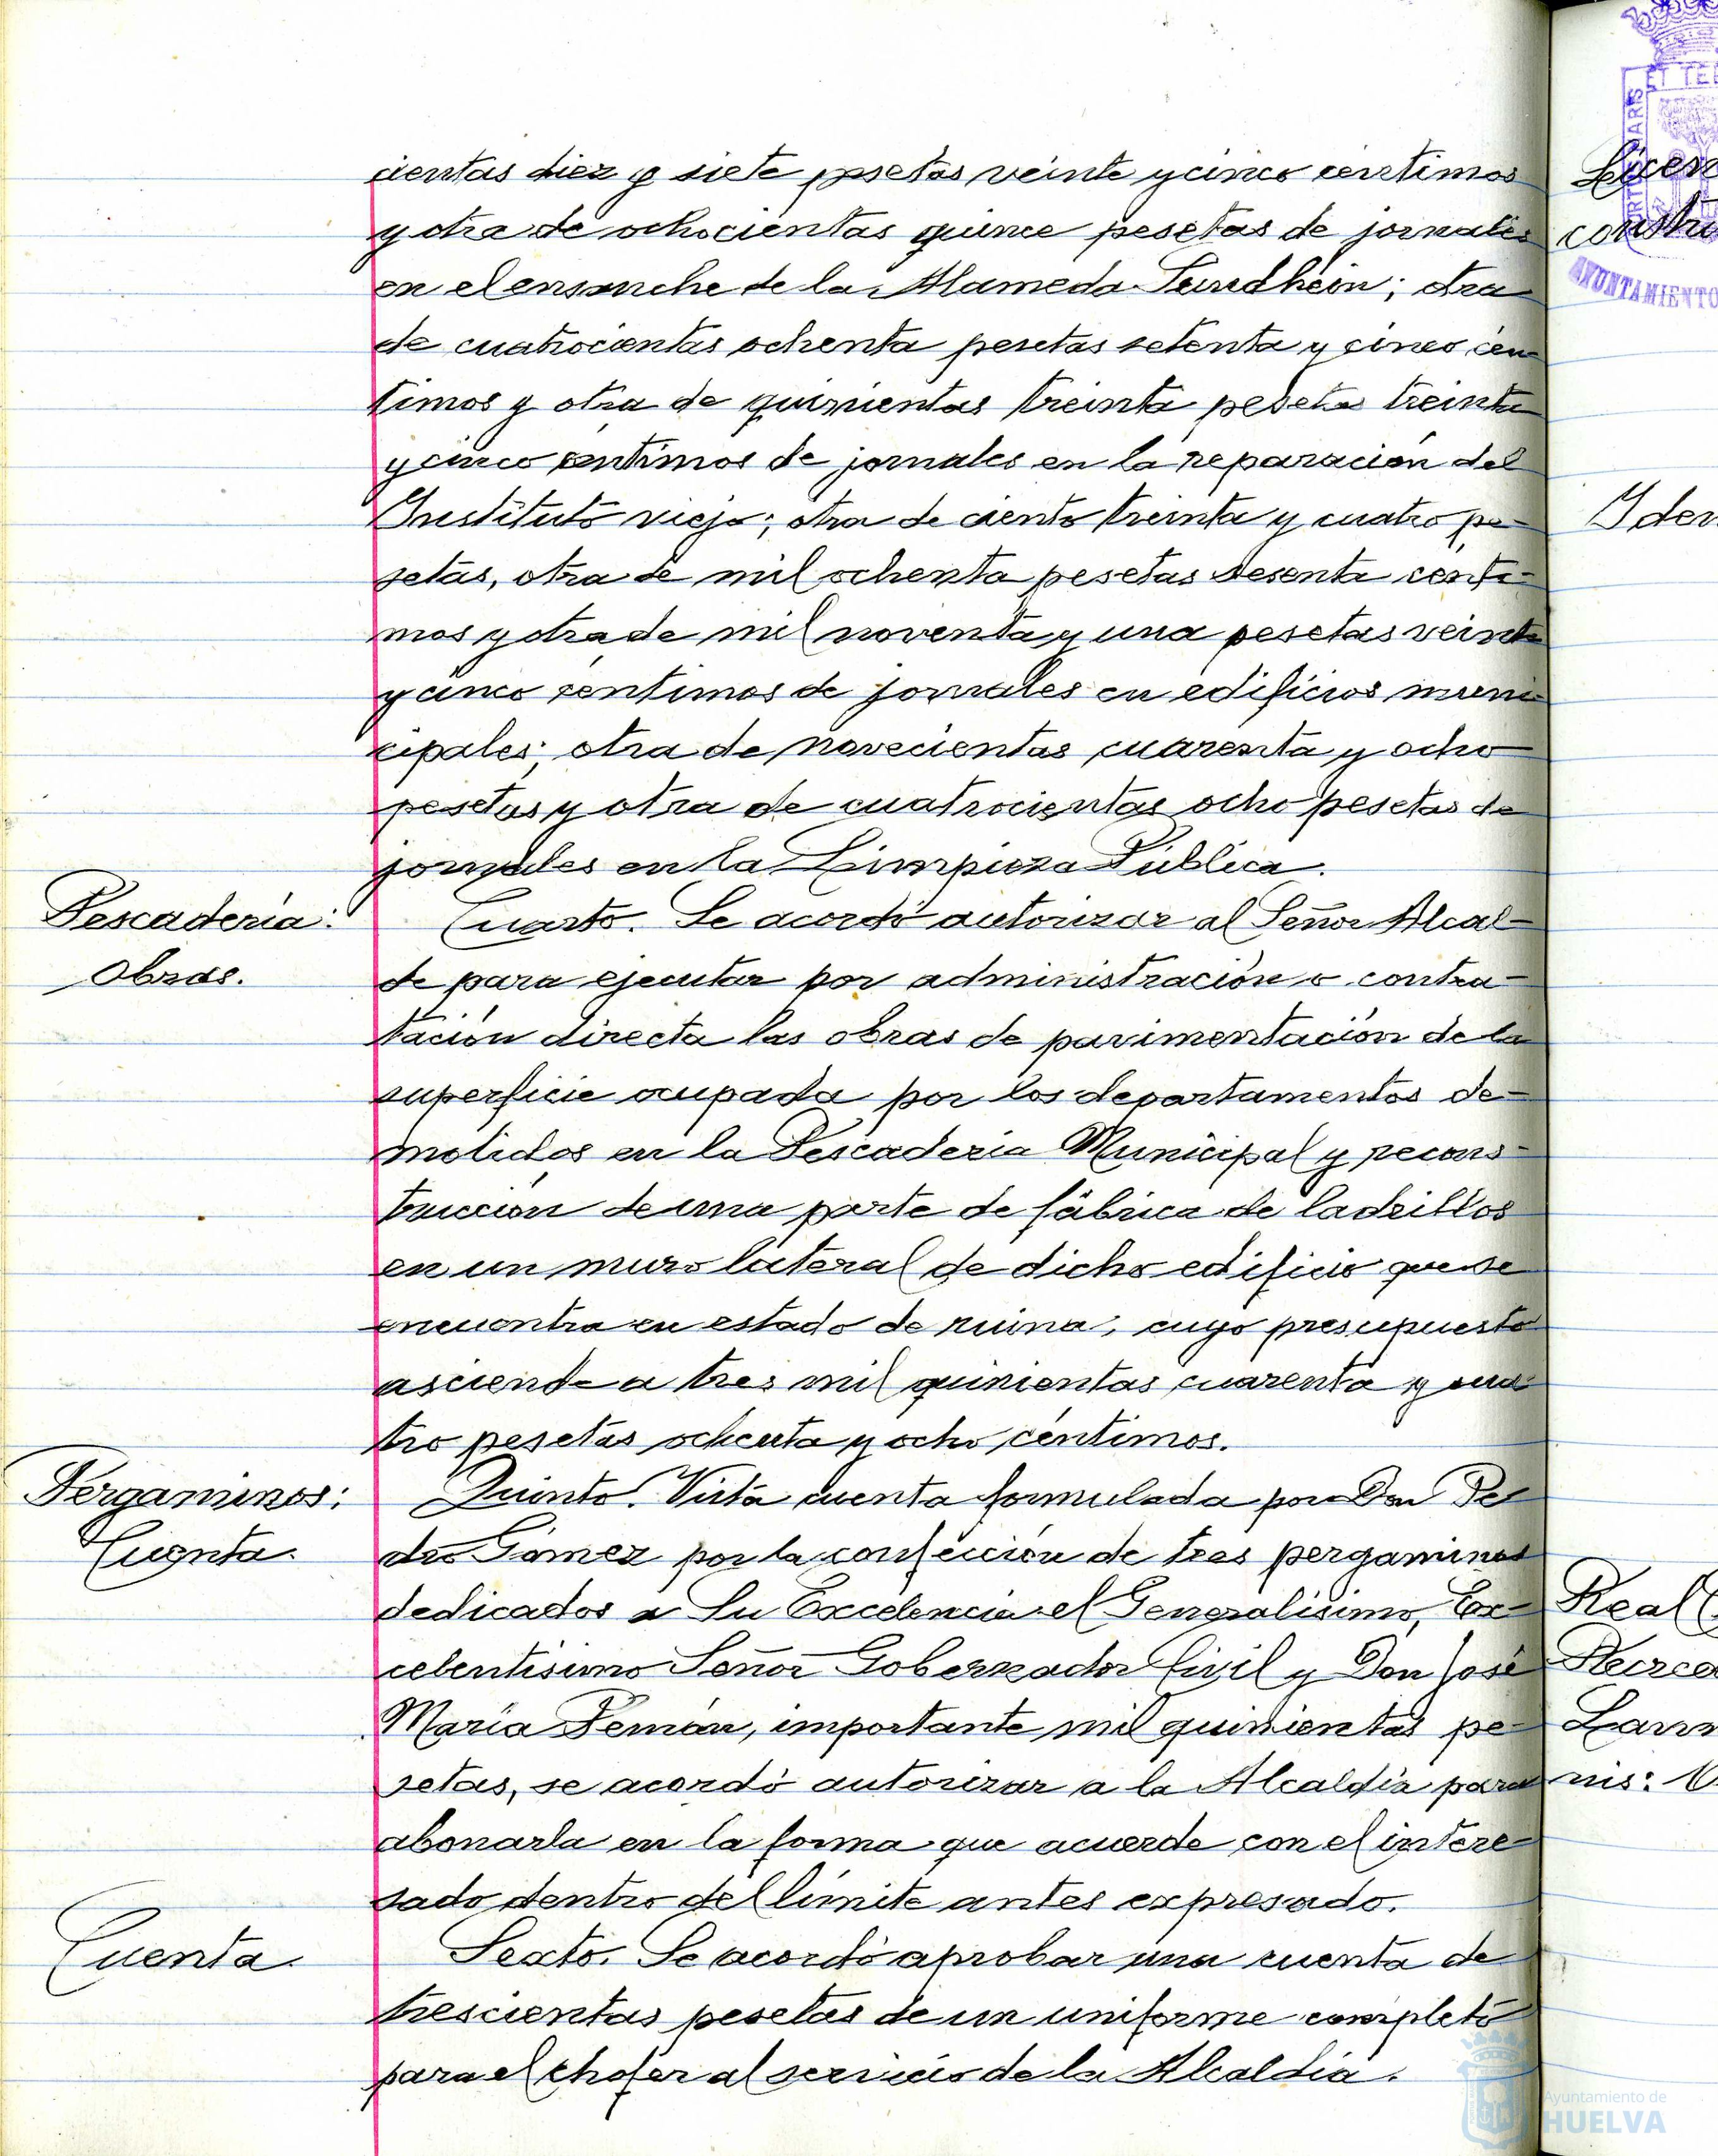 cientas diez y siete pesetas veinte y cinco centimos
y otra de ochocientas quince pesetas de jornales
en el ensanche de la Alameda Sundhein; otra
de cuatrocientas ochenta pesetas setenta y cinco cén
timos y otra de quinientas treinta pesetas treinta
y cinco centimos de jornales en la reparación del
Instituto viejo; otra de ciento treinta y cuatro pe-
setas, otra de mil ochenta pesetas sesenta centi-
mos y otra de mil noventa y una pesetas veinte
y cinco centimos de jornales en edificios muni
cipales; otra de novecientas cuarenta y ocho
pesetas y otra de cuatrocientas ocho pesetas de
jornales en la Limpieza Pública.
Pescadería:
Obras.
Cuarto. Se acordó autorizar al Señor Alcal-
de para ejecutar por administración o contra-
tación directa las obras de pavimentación de la
superficie ocupada por los departamentos de-
molidos en la Pescaderia Municipal y recons-
trucción de una parte de fábrica de ladrillos
en un muro lateral de dicho edificio que se
encuentra en estado de ruina, cuyo presupuesto
asciende a tres mil quinientas cuarenta y cua
tro pesetas ochenta y ocho céntimos.
Pergaminos:
Cuenta.
Quinto. Vista cuenta formulada por Don Pe
dro Gómez por la confección de tres pergaminos
dedicados a Su Excelencia el Generalísimo, Ex-
celentísimo Señor Gobernador Civil y Don José
María Pemán, importante mil quinientas pe-
setas, se acordó autorizar a la Alcaldía para
abonarla en la forma que acuerde con el intere-
sado dentro del límite antes expresado.
Cuenta.
Sexto. Se acordó aprobar una cuenta de
trescientas pesetas de un uniforme completo
para el chofer al servicio de la Alcaldía.
Licen
constru
AYUNTAMIENTO
Iden
Real
Larr
nis:
Ayuntamiento de
HUELVA